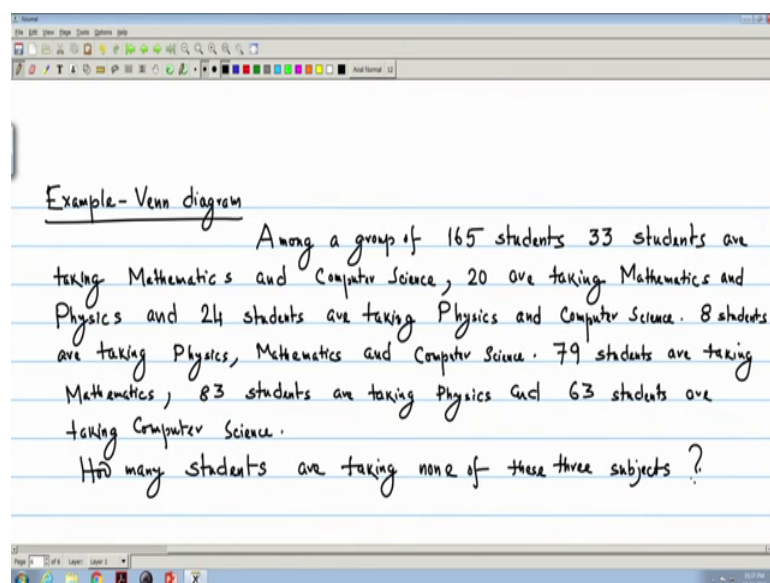 Journal
File Edit View Page Tools Options Help
Arial Normal 12
Example - Venn diagram
Among a group of 165 students 33 students are
taking Mathematics and Computer Science, 20 are taking Mathematics and
Physics and 24 students are taking Physics and Computer Science. 8 students
are taking Physics, Mathematics and Computer Science. 79 students are taking
Mathematics, 83 students are taking Physics and 63 students are
taking Computer Science.
How many students are taking none of these three subjects ?
Page 6 of 6 Layer: Layer 1